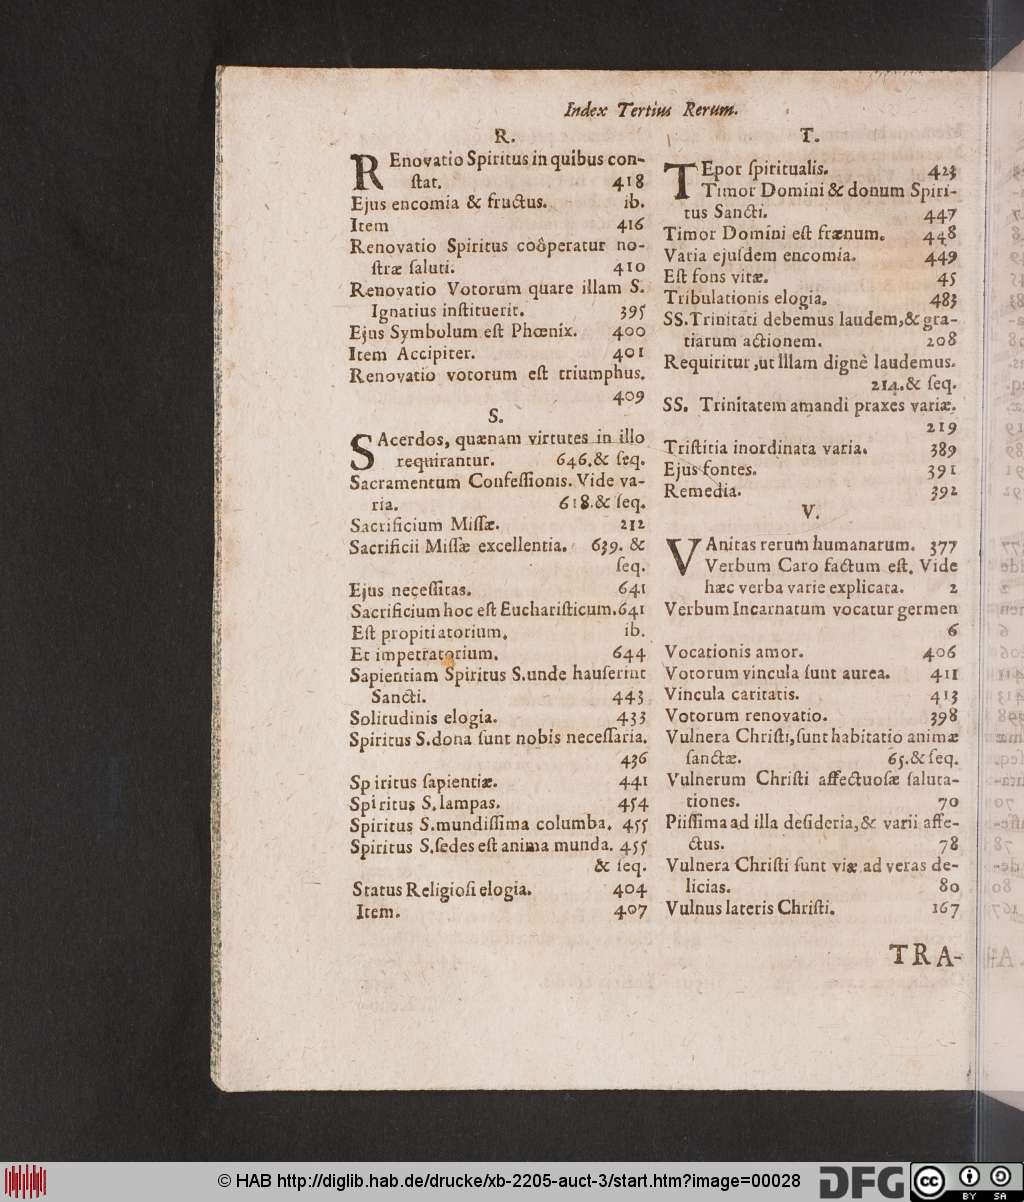 Index Tertius Rerum.
R.
REnovatio Spiritus in quibus con-
ſtat. 418
Ejus encomia & fructus. ib.
Item 416
Renovatio Spiritus coôperatur no-
ſtræ ſaluti. 410
Renovatio Votorum quare illam S.
Ignatius inſtituerit. 395
Ejus Symbolum eſt Phœnix. 400
Item Accipiter. 401
Renovatio votorum eſt triumphus.
409
S.
SAcerdos, quænam virtutes in illo
requirantur. 646.& ſeq.
Sacramentum Confeſſionis. Vide va-
ria. 618.& ſeq.
Sacrificium Miſſæ. 212
Sacrificii Miſſæ excellentia. 639. &
ſeq.
Ejus neceſſitas. 641
Sacrificium hoc eſt Euchariſticum. 641
Eſt propitiatorium. ib.
Et impetratorium. 644
Sapientiam Spiritus S. unde hauſerint
Sancti. 443
Solitudinis elogia. 433
Spiritus S. dona ſunt nobis neceſſaria.
436
Spiritus ſapientiæ. 441
Spiritus S. lampas. 454
Spiritus S. mundiſſima columba. 455
Spiritus S. ſedes eſt anima munda. 455
& ſeq.
Status Religioſi elogia. 404
Item. 407
T.
TEpor ſpiritualis. 423
Timor Domini & donum Spiri-
tus Sancti. 447
Timor Domini eſt frænum. 448
Varia ejuſdem encomia. 449
Eſt fons vitæ. 45
Tribulationis elogia. 483
SS. Trinitati debemus laudem, & gra-
tiarum actionem. 208
Requiritur, ut Illam dignè laudemus.
214.& ſeq.
SS. Trinitatem amandi praxes variæ.
219
Triſtitia inordinata varia. 389
Ejus fontes. 391
Remedia. 392
V.
VAnitas rerum humanarum. 377
Verbum Caro factum eſt. Vide
hæc verba varie explicata. 2
Verbum Incarnatum vocatur germen
6
Vocationis amor. 406
Votorum vincula ſunt aurea. 411
Vincula caritatis. 413
Votorum renovatio. 398
Vulnera Chriſti, ſunt habitatio animæ
ſanctæ. 65.& ſeq.
Vulnerum Chriſti affectuoſæ ſaluta-
tiones. 70
Piiſſima ad illa deſideria, & varii affe-
ctus. 78
Vulnera Chriſti ſunt viæ ad veras de-
licias. 80
Vulnus lateris Chriſti. 167
TRA-
© HAB http://diglib.hab.de/drucke/xb-2205-auct-3/start.htm?image=00028
DFG
cc
BY SA